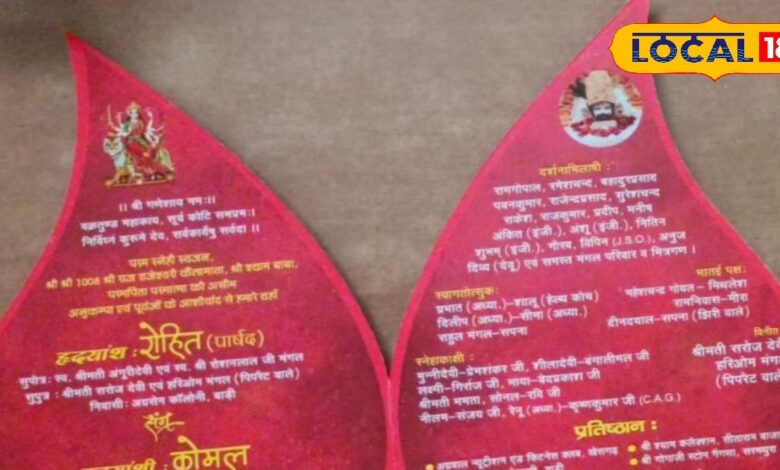 LOCAL 18
।। श्री गणेशाय नमः।।
वक्रतुण्ड महाकाय, सूर्य कोटि समप्रभः।
निर्विघ्नं कुरूमे देव, सर्वकार्येषु सर्वदा ।।
परम स्नेही स्वजन,
श्री श्री 1008 श्री राज राजेश्वरी कैलामाता, श्री श्याम बाबा,
परमपिता परमात्मा की असीम
अनुकम्पा एवं पूर्वजों के आशीर्वाद से हमारे यहाँ
हृदयांश : रोहित (पार्षद)
सुपौत्र : स्व. श्रीमती अंगूरीदेवी एवं स्व. श्री रोशनलाल जी मंगल
सुपुत्र : श्रीमती सरोज देवी एवं हरिओम मंगल (पिपरैट वाले)
निवासी : अग्रसेन कॉलोनी, बाड़ी
संग
कोमल
दर्शनाभिलाषी :
रामगोपाल, रमेशचन्द, बहादुरप्रसाद
पवनकुमार, राजेन्द्रप्रसाद, सुरेशचन्द
राकेश, राजकुमार, प्रदीप, मनीष
अंकित (इंजी.), अंशू (इंजी.), नितिन
शुभम् (इंजी.), गौरव, विपिन (J.S.O.), अनुज
दिव्य (देवू) एवं समस्त मंगल परिवार व मित्रगण ।
स्वागतोत्सुक :
प्रभात (अध्या.)–शालू (हेल्थ कोच)
दिलीप (अध्या.)–सीमा (अध्या.)
राहुल मंगल–सपना
मातई पक्ष :
महेशचन्द गोयल– मिथलेश
रामनिवास–मीरा
दीनदयाल–सपना (झिरी वाले)
स्नेहाकांक्षी :
मुन्नीदेवी–प्रेमशंकर जी, शीलादेवी–बंगालीमल जी
लक्ष्मी–गिर्राज जी, माया–वेदप्रकाश जी
श्रीमती ममता, सोनल–रवि जी
नीलम–संजय जी, रेनू (अध्या.)–कृष्णकुमार जी (C.A.G.)
विनीत
श्रीमती सरोज देवी
हरिओम मंग
(पिपरैट वाले)
प्रतिष्ठान :
● अग्रवाल न्यूट्रीशन एंड फिटनेस क्लब, खेरागढ़
● श्री श्याम कलेक्शन, सीताराम बाजा
● श्री गोगाजी स्टोन गैंगसा, सरमथुरा